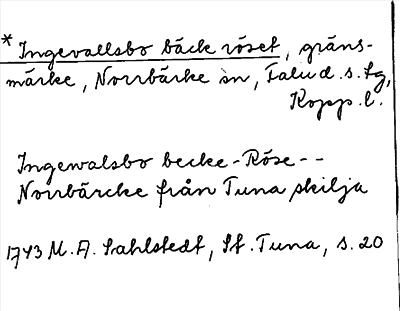 * Ingevallsbo bäck röset, gräns-
märke, Norrbärke sn, Falu d.s. tg,
Kopp. l.
Ingewalsbo becke-Röse--
Norrbärcke från Tuna skilja
1743 M.A. Sahlstedt, St. Tuna, s. 20